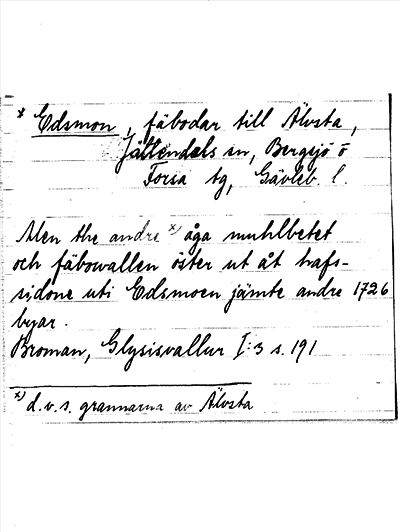 x Edsmon, fäbodar till Älvsta,
Jättendals sn, Bergsjö o
Forsa tg, Gävleb. l.
Men the andre x) äga muhlbetet
och fäbowallen öster ut åt hafs-
sidone uti Edsmoen jämte andre 1726
byar.
Broman, Glysisvallur I:3 s. 191
x) d.v.s. grannarna av Älvsta